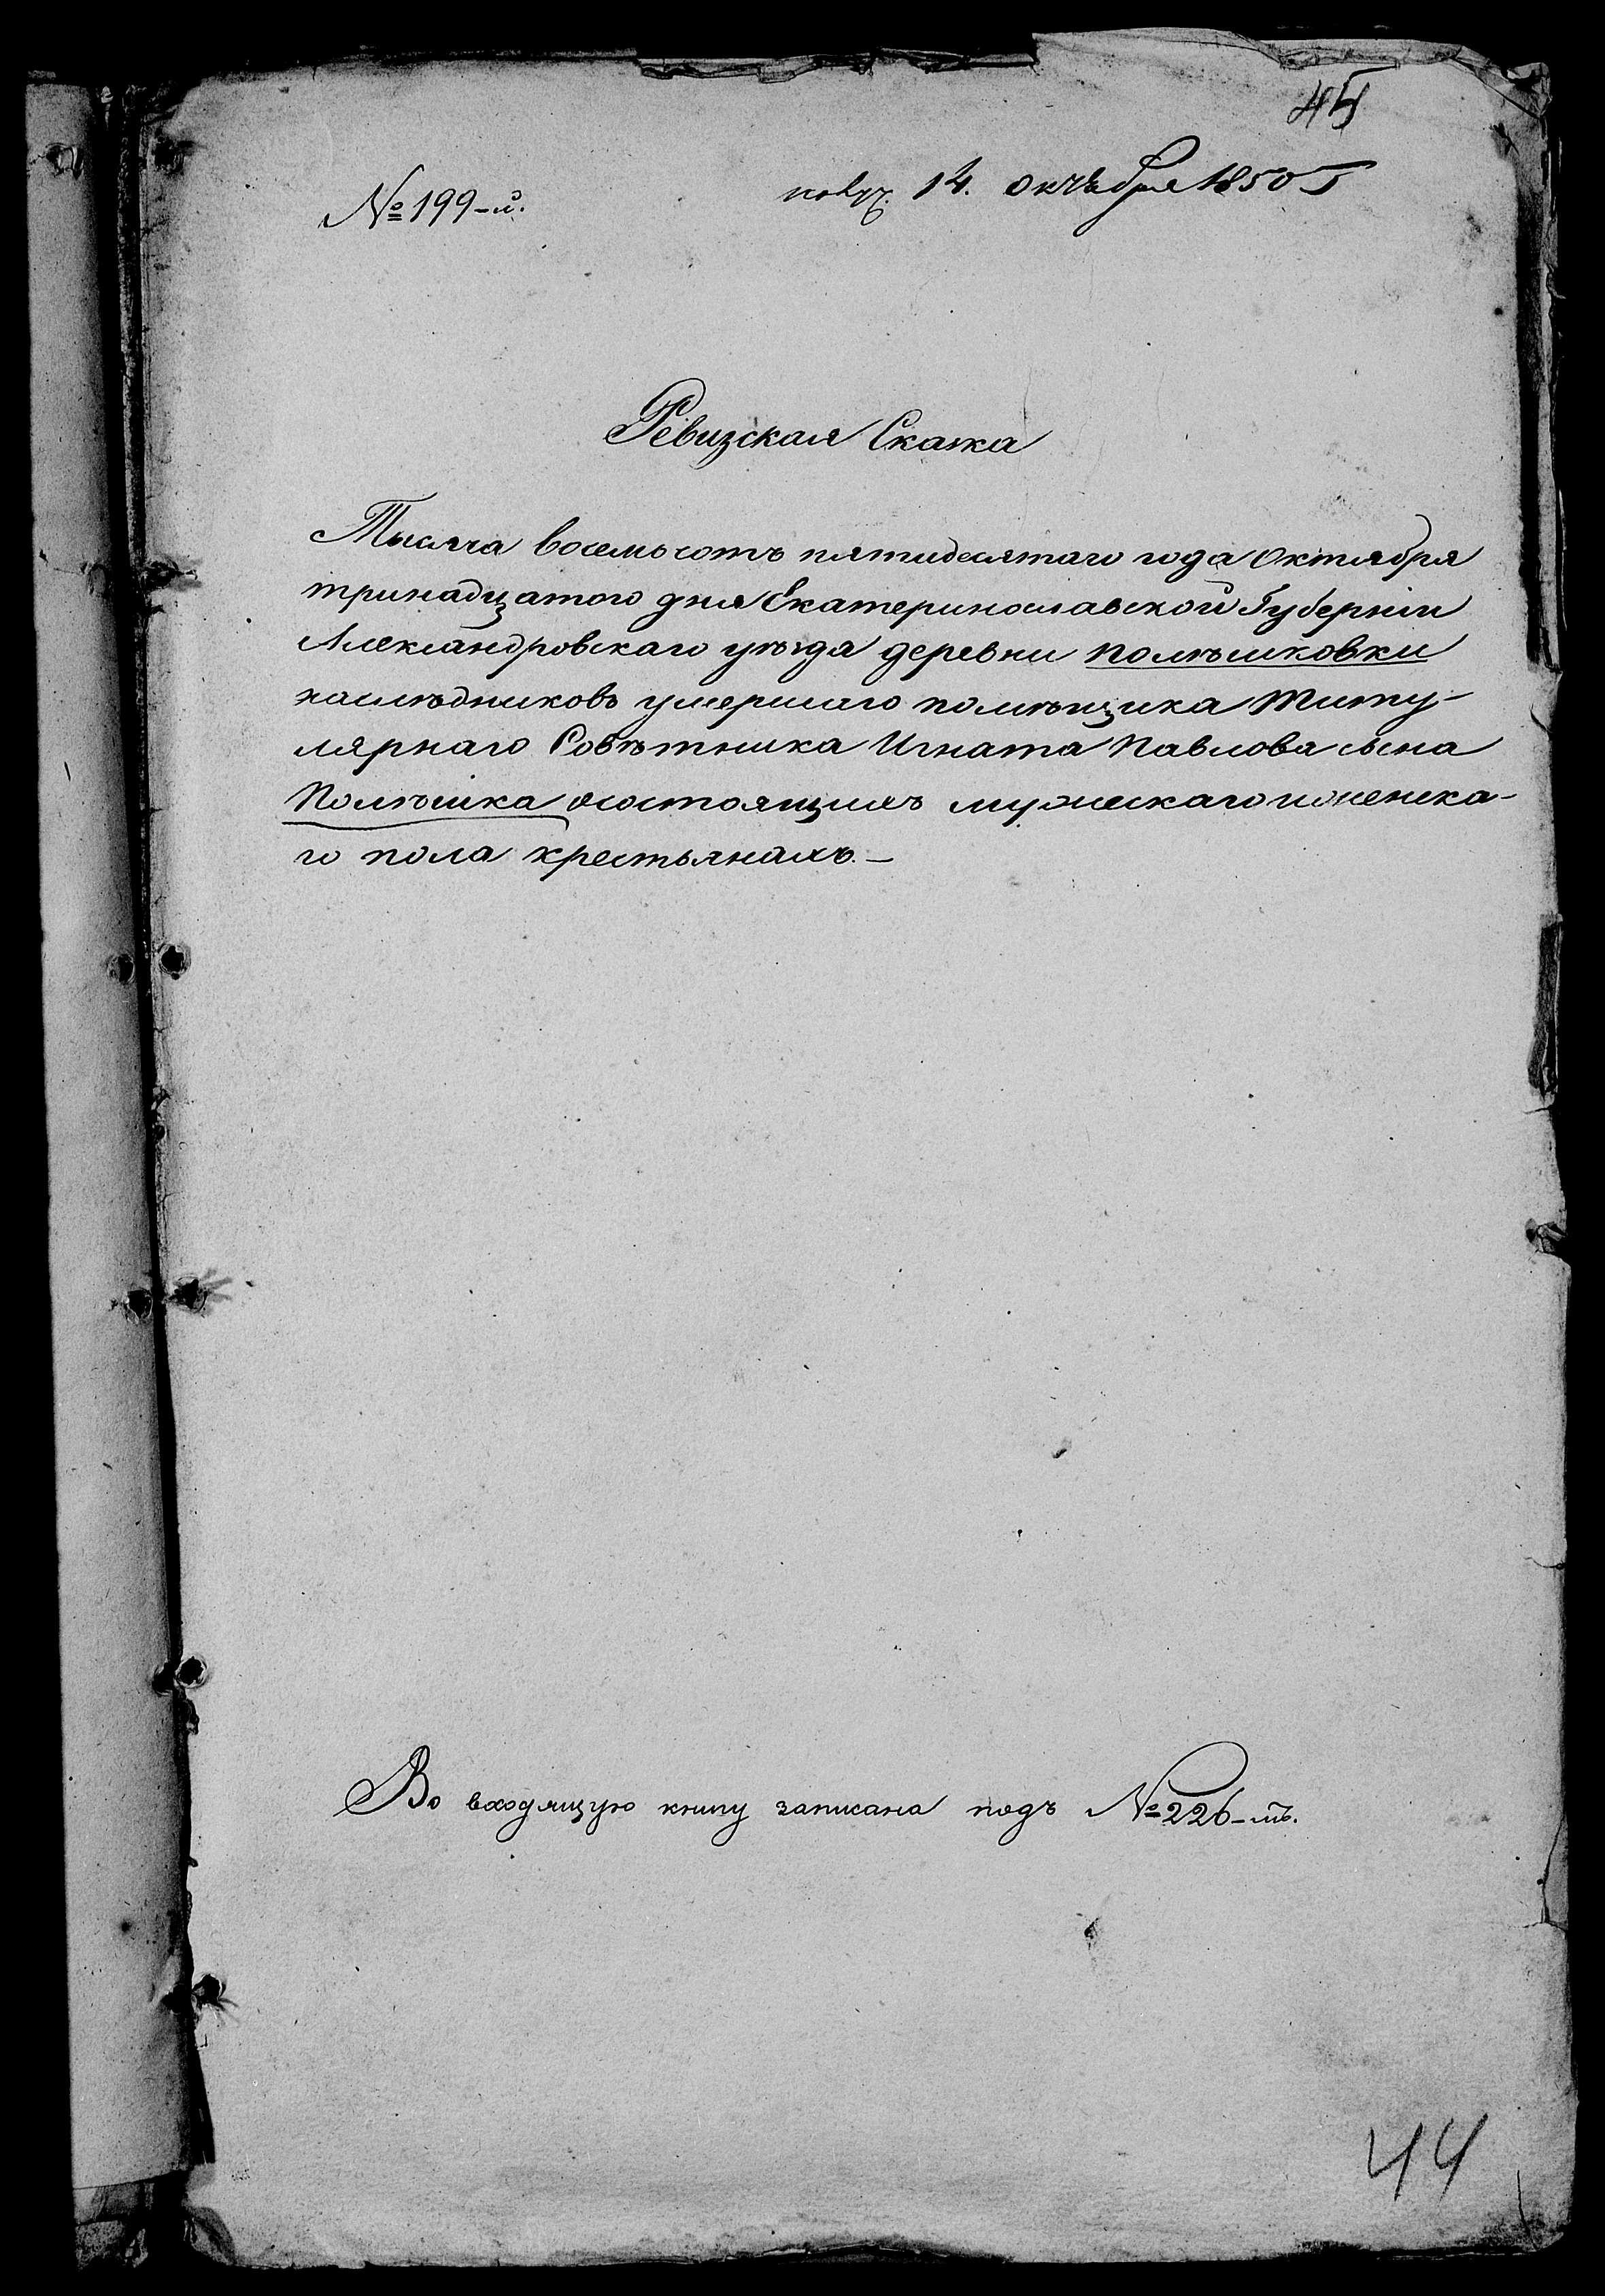 45
№ 199-й.
получ. 14. Октября 1850 г
Ревизская Сказка
Тысяча восемьсотъ пятидесятаго года Октября
тринадцатого дня Екатеринославской Губерніи
Александровскаго уѣзда деревни Полѣшковки
наслѣдниковъ умершаго помѣщика Титу-
лярнаго Совѣтника Игната Павлова сына
Полѣшка о состоящихъ мужескаго и женска-
го пола крестьянахъ.—
Во входящую книгу записана подъ № 226-мъ.
44